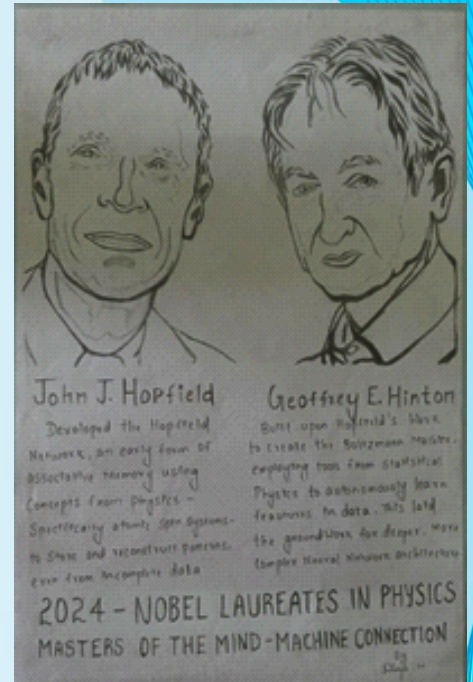 John J. Hopfield
Developed the Hopfield
Network, an early form of
associative memory using
Concepts from Physics -
Specifically atomic spin systems-
to store and reconstruct patterns,
even from incomplete data
Geoffrey E. Hinton
Built upon Hopfield's work
to create the Boltzmann Machine,
employing tools from statistical
Physics to autonomously learn
features in data. This laid
the groundwork for deeper, more
Complex Neural Network architectures
2024 - NOBEL LAUREATES IN PHYSICS
MASTERS OF THE MIND-MACHINE CONNECTION
By